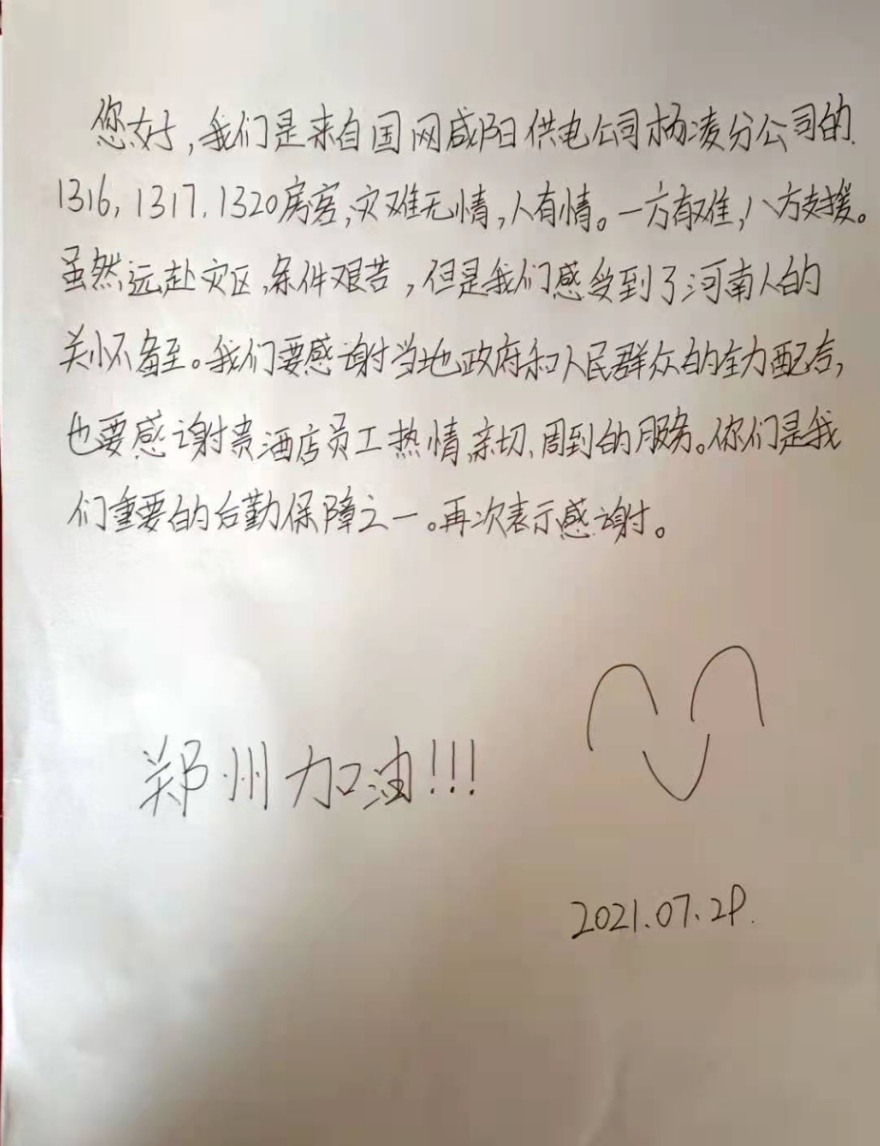 您好,我们是来自国网咸阳供电公司杨凌分公司的
1316,1317.1320房客,灾难无情,人有情。一方有难,八方支援。
虽然远赴灾区,条件艰苦,但是我们感受到了河南人的
关怀备至。我们要感谢当地政府和人民群众的全力配合,
也要感谢贵酒店员工热情、亲切、周到的服务。你们是我
们重要的后勤保障之一。再次表示感谢。
郑州加油!!!
2021.07.29.